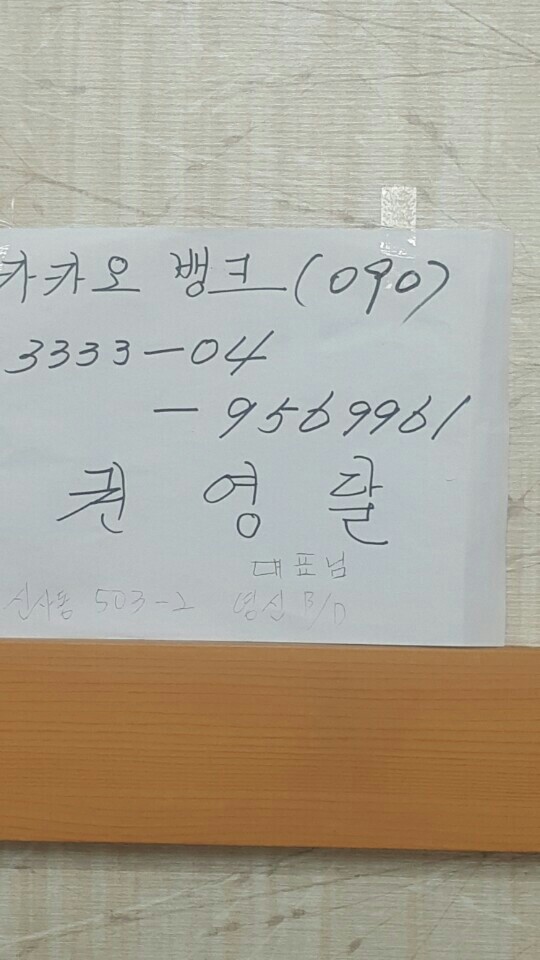 카카오 뱅크 (090)
3333-04
- 9569961
권 영 달
대표님
신사동 503-2 영신 B/D